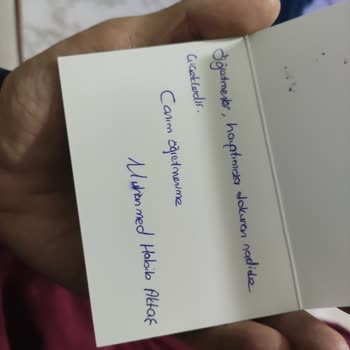 Öğretmenler, hayatımıza dokunan nadide
çiçeklerdir.
Canım öğretmenime
Muhammed Habib Aktaş